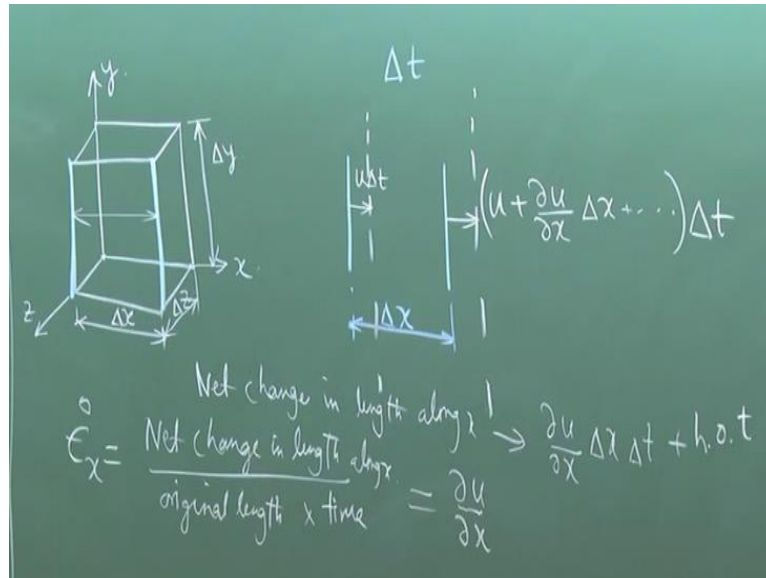 Δt
y
Δy
uΔt
(u + ∂u/∂x Δx + ...) Δt
x
Δz
z
Δx
Δx
Net change in length along x → ∂u/∂x Δx Δt + h.o.t
ε̇x = Net change in length along x / original length x time = ∂u/∂x